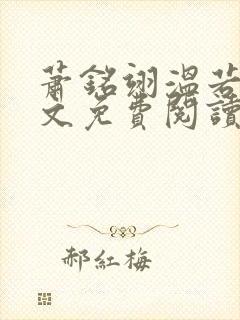 蕭銘翊溫若
文免費閱讀
郝紅梅